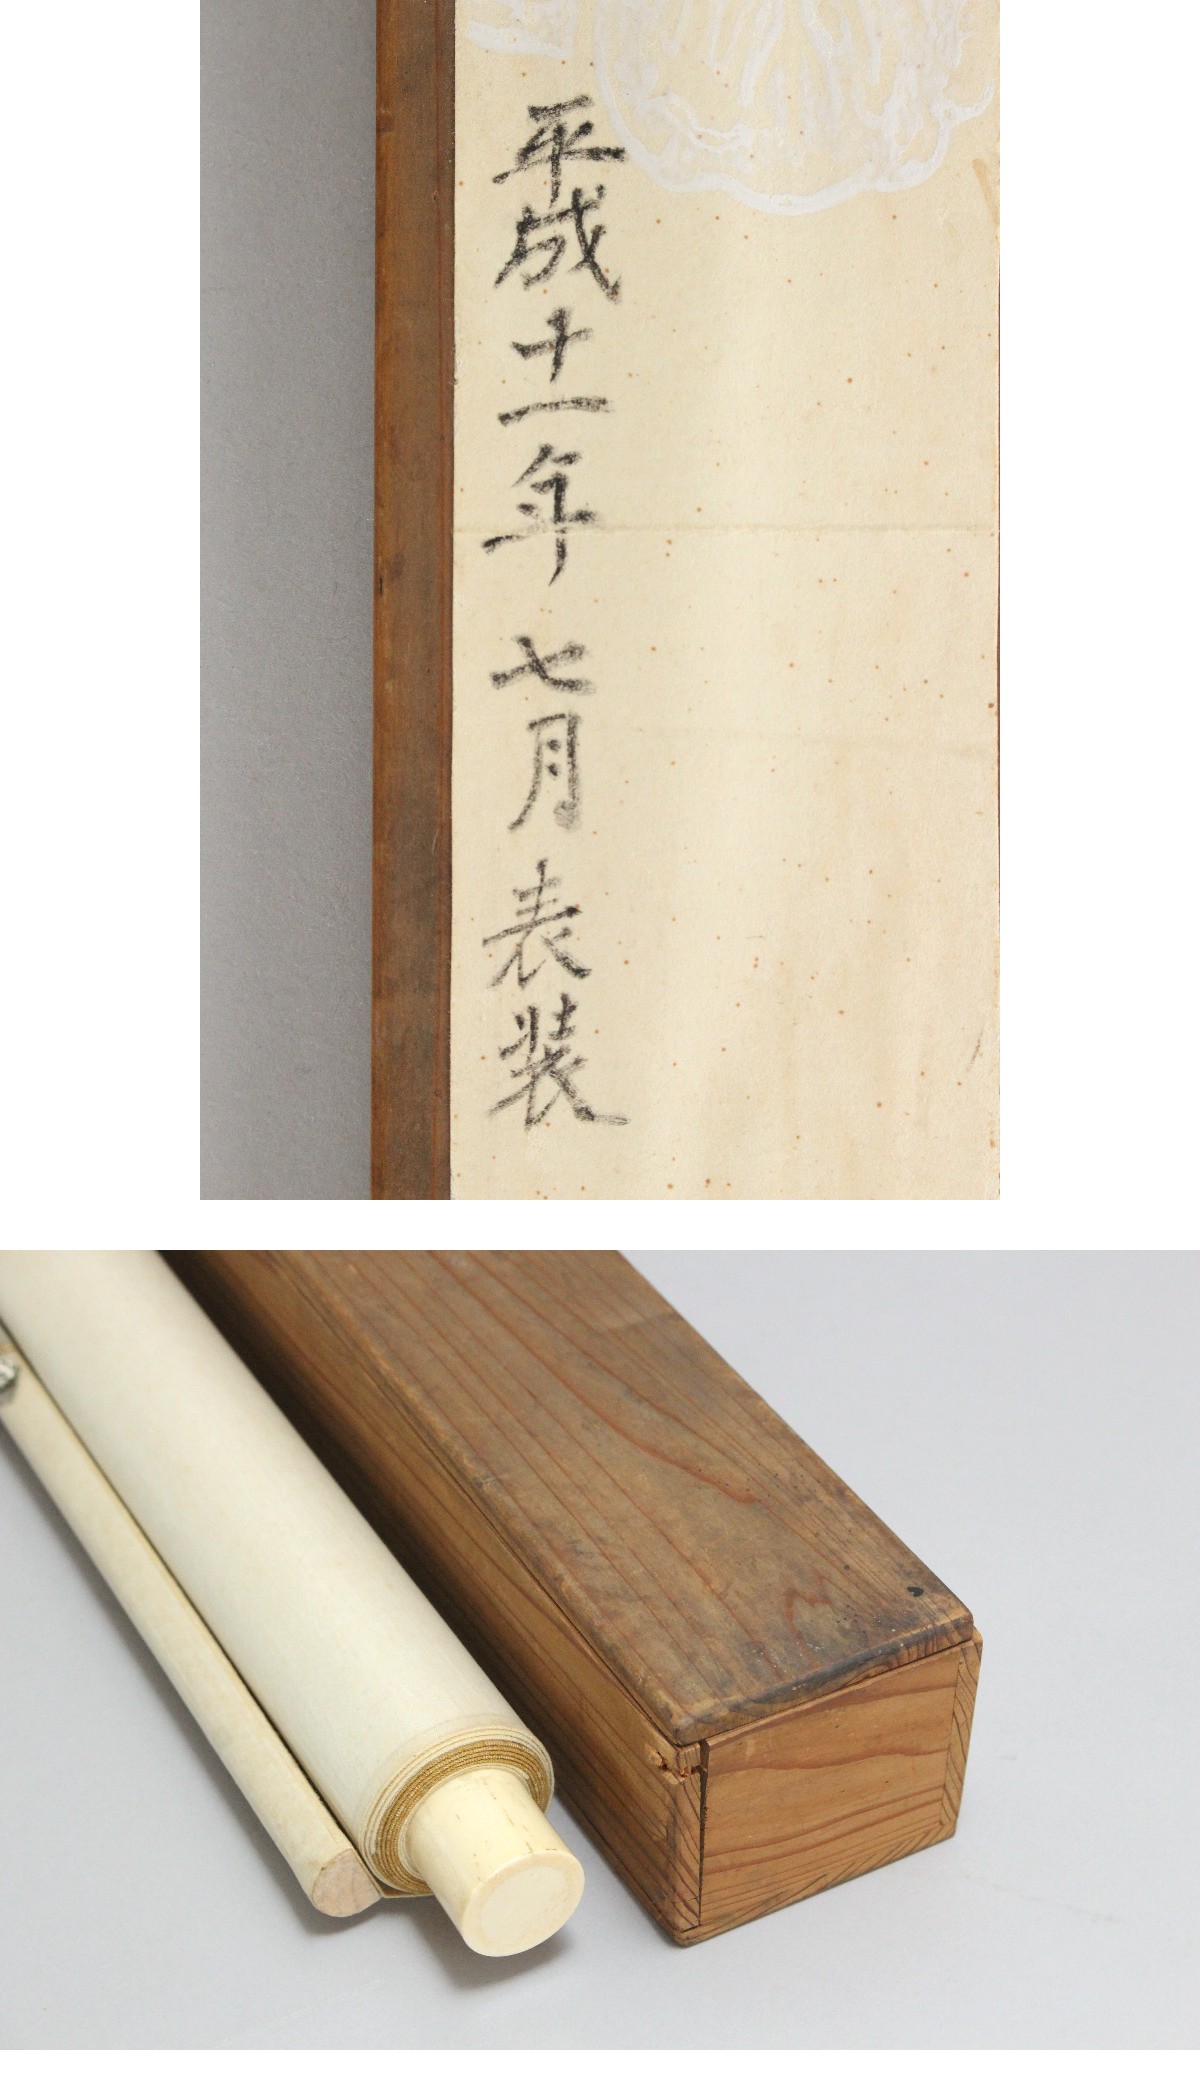 平成十一年七月表装